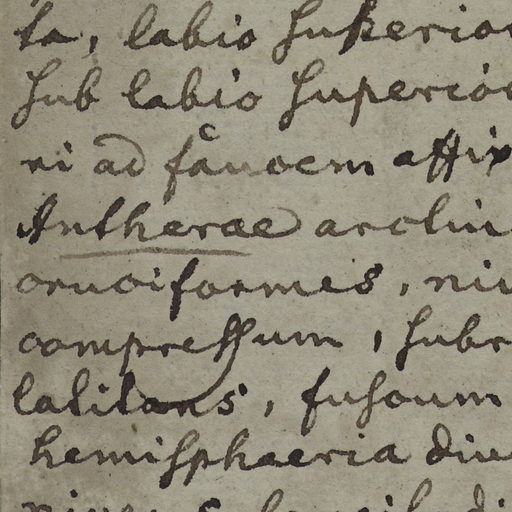 ta, labio superior
sub labio superior
ni ad faucem affix
Antherae arcliu
cruciformes, niv
compressum, subr
latitans, fuscum
hemisphaeria div